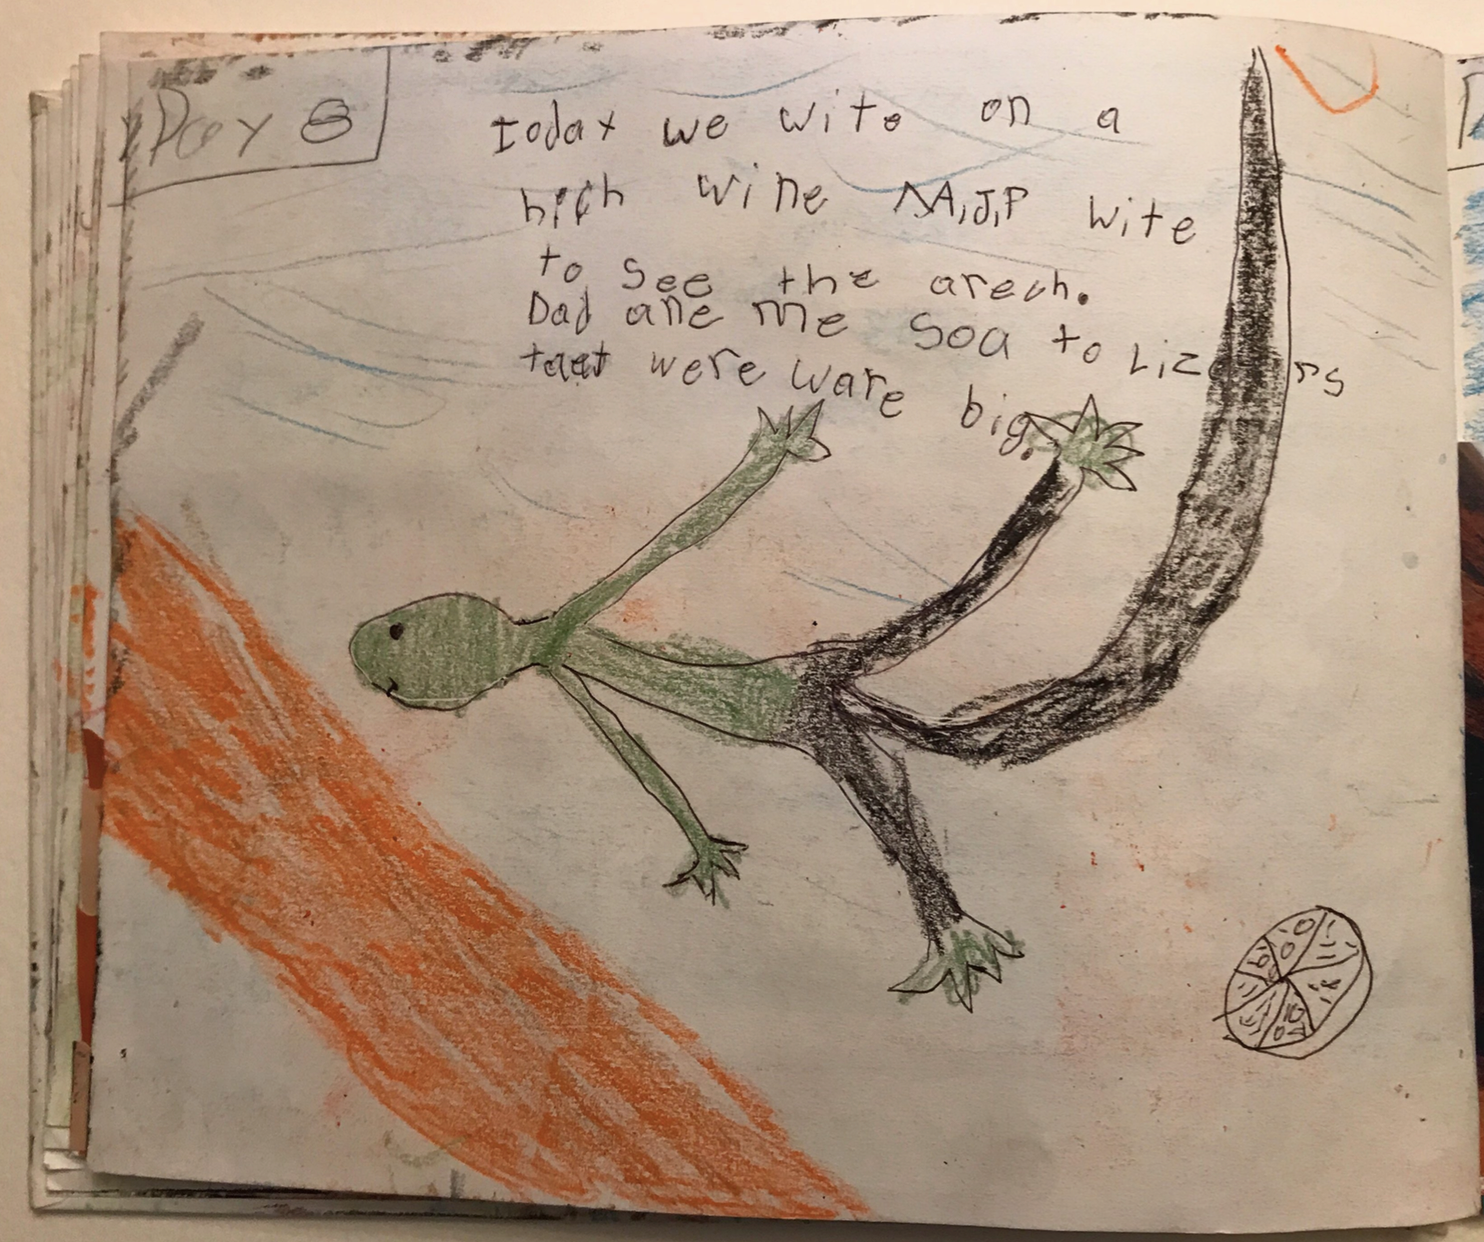 Day 8
today we wite on a
hich wine M,A,J,P wite
to see the arech.
Dad ane me soa to Lizars
taet were ware big.